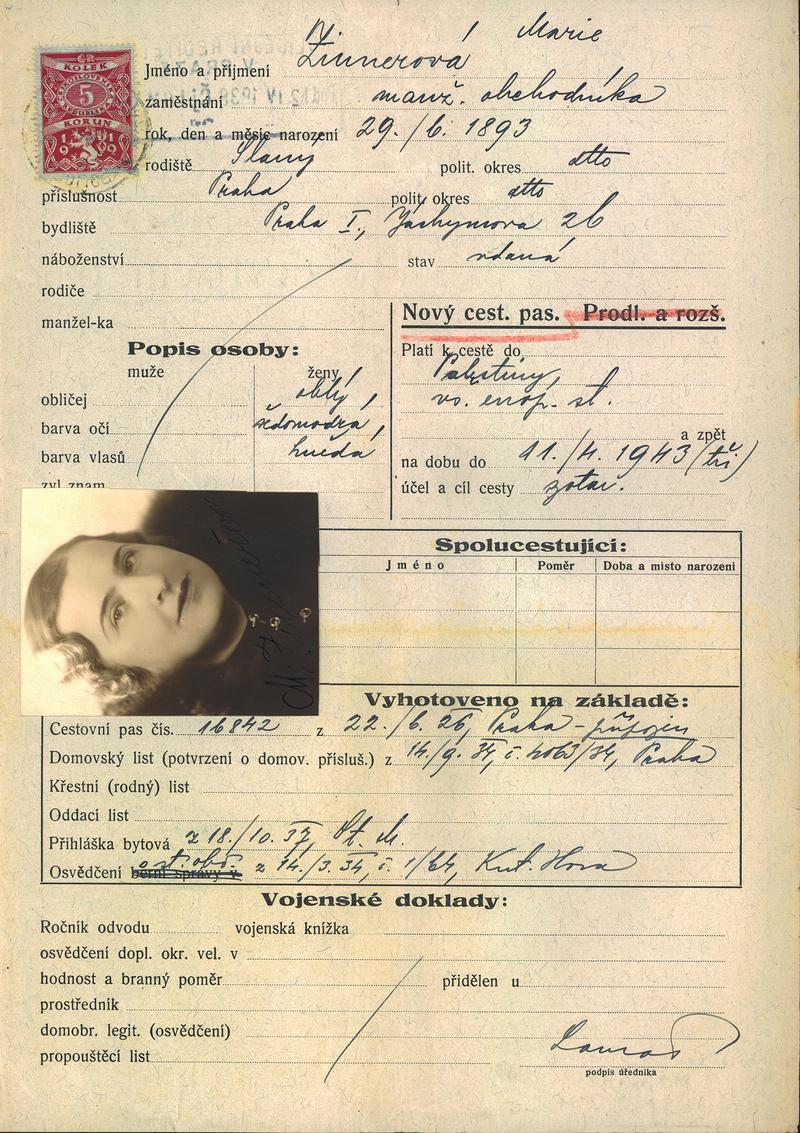 Marie
Jméno a příjmení Zinnerová
KOLEK
5
KORUN
1919
zaměstnání manž. obchodníka
rok, den a měsíc narození 29./6. 1893
rodiště Slaný polit. okres dtto
příslušnost Praha polit. okres dtto
bydliště Praha I., Jáchymova 26
náboženství stav vdaná
rodiče
manžel-ka
Nový cest. pas. Prodl. a rozš.
Popis osoby:
muže ženy
obličej oblý,
barva očí šedomodrá,
barva vlasů hnědá
zvl. znam.
Platí k cestě do
Palestiny,
vš. evrop. st.
a zpět
na dobu do 11./4. 1943 (tři)
účel a cíl cesty zotav.
Spolucestující:
Jméno Poměr Doba a místo narození
Vyhotoveno na základě:
Cestovní pas čís. 16842 z 22./6. 26, Praha - připojen
Domovský list (potvrzení o domov. přísluš.) z 14./9. 34, č. 4063/34, Praha
Křestní (rodný) list
Oddací list
Přihláška bytová z 18./10. 37, St. M.
Osvědčení berní správy v z 14./3. 34, č. 1/64, Kut. Hora
Vojenské doklady:
Ročník odvodu vojenská knížka
osvědčení dopl. okr. vel. v
hodnost a branný poměr přidělen u
prostředník
domobr. legit. (osvědčení)
propouštěcí list
podpis úředníka